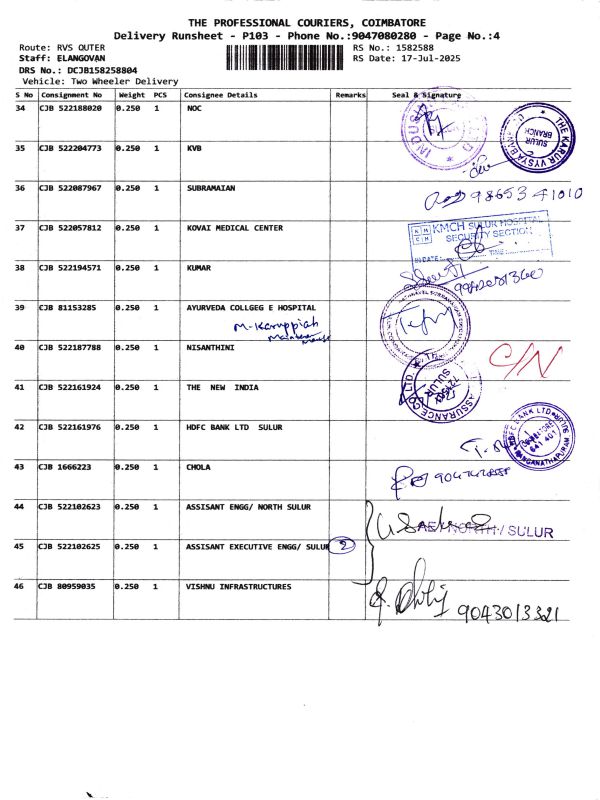 THE PROFESSIONAL COURIERS, COIMBATORE
Delivery Runsheet - P103 - Phone No.:9047080280 - Page No.:4
Route: RVS OUTER
RS No.: 1582588
Staff: ELANGOVAN
RS Date: 17-Jul-2025
DRS No.: DCJB158258804
Vehicle: Two Wheeler Delivery
S No Consignment No Weight PCS Consignee Details Remarks Seal & Signature
34 CJB 522188020 0.250 1 NOC
35 CJB 522204773 0.250 1 KVB
THE KARUR VYSYA BANK
SULUR
BRANCH
36 CJB 522087967 0.250 1 SUBRAMAIAN
98653 41010
37 CJB 522057812 0.250 1 KOVAI MEDICAL CENTER
KMCH SULUR HOSPITAL
SECURITY SECTION
DATE: TIME:
38 CJB 522194571 0.250 1 KUMAR
39 CJB 81153285 0.250 1 AYURVEDA COLLGEG E HOSPITAL
M. Karuppiah
40 CJB 522187788 0.250 1 NISANTHINI
C/N
41 CJB 522161924 0.250 1 THE NEW INDIA
ASSURANCE CO LTD
SULUR
42 CJB 522161976 0.250 1 HDFC BANK LTD SULUR
HDFC BANK LTD SULUR
COIMBATORE
641 401
RANGANATHAPURAM
43 CJB 1666223 0.250 1 CHOLA
44 CJB 522102623 0.250 1 ASSISANT ENGG/ NORTH SULUR
AE/NORTH/SULUR
45 CJB 522102625 0.250 1 ASSISANT EXECUTIVE ENGG/ SULUR 2
46 CJB 80959035 0.250 1 VISHNU INFRASTRUCTURES
9043013321